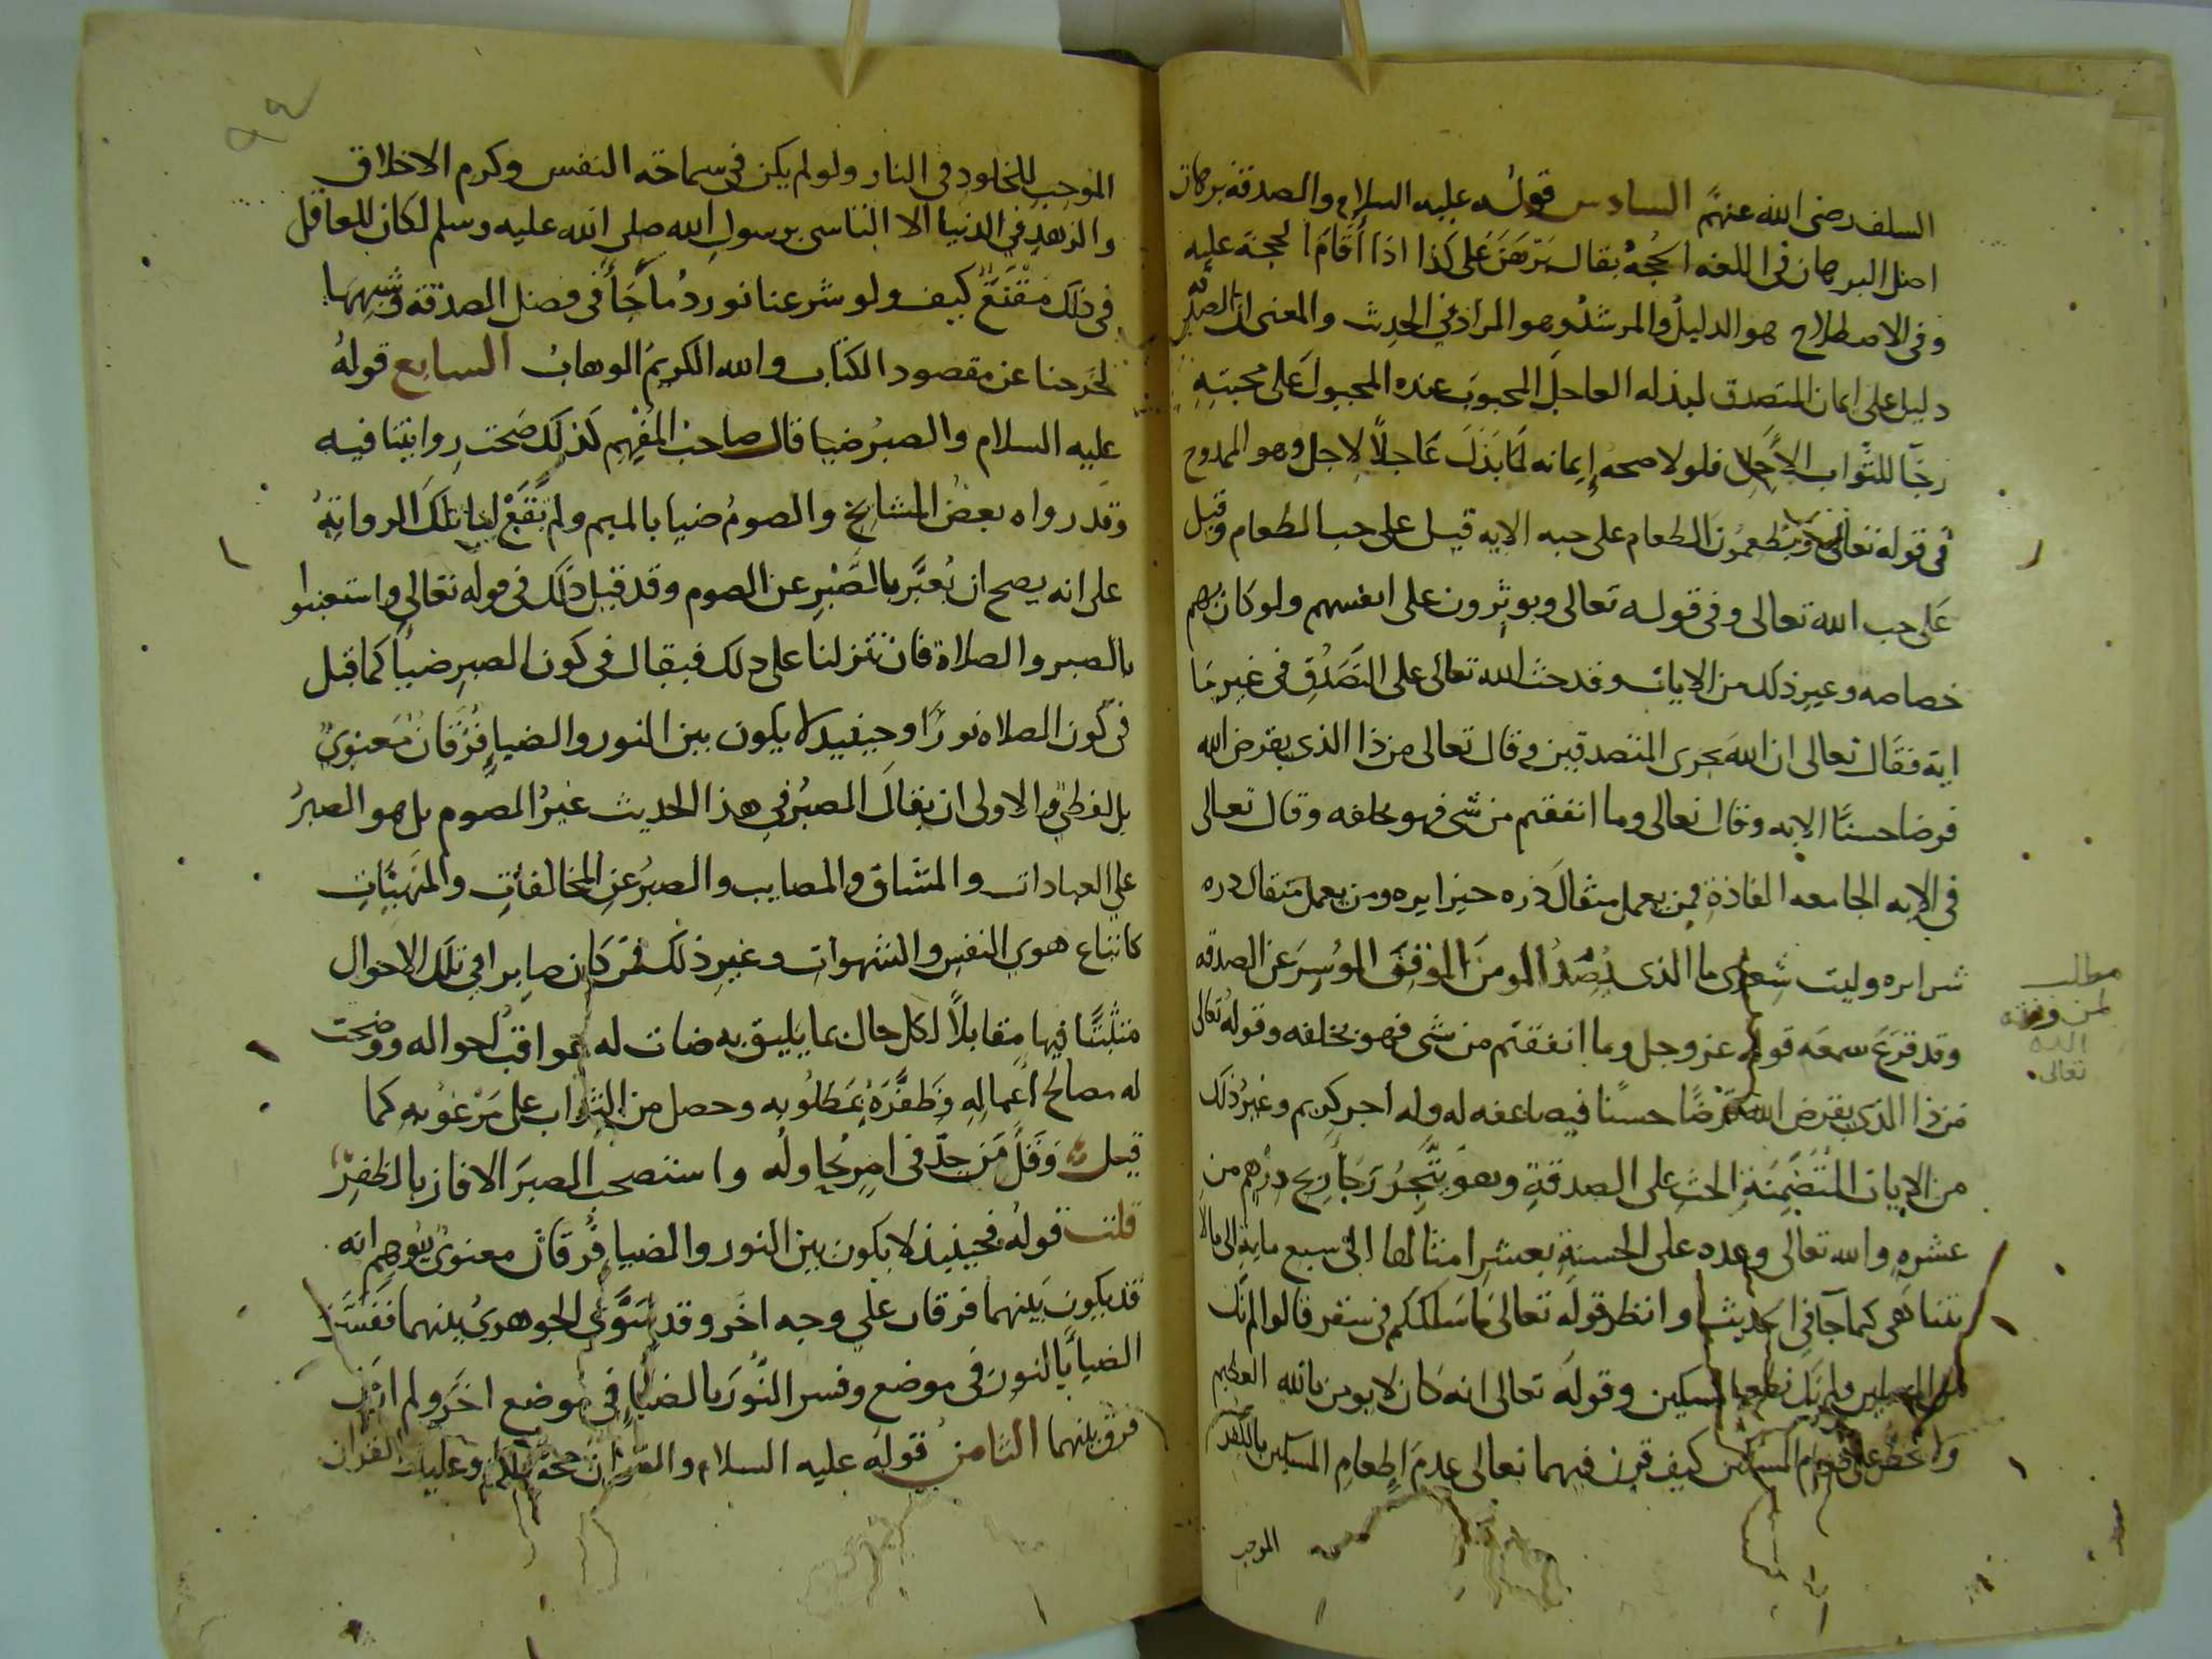 السلف رضى الله عنهم السادس قوله عليه السلام والصدقة برهان
اصل البرهان فى اللغه الحجة يقال برهن على كذا اذا أقام الحجة عليه
وفى الاصطلاح هو الدليل والمرشد وهو المراد في الحديث والمعنى ان الصدقة
دليل على ايمان المتصدق لبذله العاجل المحبوب عنده المجبول على محبته
رجا للثواب الآجل فلولا صحه إيمانه لما بذل عاجلا لاجل وهو الممدوح
فى قوله تعالى ويطعمون الطعام على حبه الايه قيل على حب الطعام وقيل
على حب الله تعالى وفى قوله تعالى ويوثرون على انفسهم ولو كان بهم
خصاصه وغير ذلك من الايات وقد حث الله تعالى على التصدق فى غير ما
اية فقال تعالى ان الله يجزى المتصدقين وقال تعالى من ذا الذى يقرض الله
قرضا حسنا الايه وقال تعالى وما انفقتم من شى فهو يخلفه وقال تعالى
فى الايه الجامعه الفاذة فمن يعمل مثقال ذره خيرا يره ومن يعمل مثقال ذره
شرا يره وليت شعرى ما الذى يصد المومن الموفق الموسر عن الصدقه
وقد قرع سمعه قوله عز وجل وما انفقتم من شى فهو يخلفه وقوله تعالى
من ذا الذى يقرض الله قرضا حسنا فيضاعفه له وله اجر كريم وغير ذلك
من الايات المتضمنة الحث على الصدقة وهو يتجر رجا ربح درهم من
عشره والله تعالى وعده على الحسنة بعشر امثالها الى سبع ماية الى مالا
تتناهى كما جآ فى الحديث وانظر قوله تعالى ما سلككم فى سقر قالوا لم نك
من المصلين ولم نك نطعم المسكين وقوله تعالى انه كان لا يومن بالله العظيم
ولا يحض على طعام المسكين كيف قرن فيهما تعالى عدم اطعام المسكين بالكفر
الموجب
مطلب
لمن وفقه
الله
تعالى
الموجب للخلود فى النار ولو لم يكن فى سماحة النفس وكرم الاخلاق
والزهد في الدنيا الا التاسى برسول الله صلى الله عليه وسلم لكان للعاقل
فى ذلك مقنع كيف ولو شرعنا نورد ما جأ فى فضل الصدقة وشبهها
لخرجنا عن مقصود الكتاب والله الكريم الوهاب السابع قوله
عليه السلام والصبر ضيا قال صاحب المفهم كذلك صحت روايتنا فيه
وقد رواه بعض المشايخ والصوم ضيا بالميم ولم تقع لنا تلك الرواية
على انه يصح ان يعبر بالصبر عن الصوم وقد قيل ذلك فى قوله تعالى واستعينوا
بالصبر والصلاة فان تنزلنا على ذلك فيقال فى كون الصبر ضيأ كما قيل
فى كون الصلاه نورا وحينيذ لا يكون بين النور والضيا فرقان معنوى
بل لفظي والاولى ان يقال الصبر في هذا الحديث غير الصوم بل هو الصبر
على العبادات والمشاق والمصايب والصبر عن المخالفات والمنهيات
كاتباع هوى النفس والشهوات وغير ذلك فمن كان صابرا في تلك الاحوال
متثبتا فيها مقابلا لكل حال بما يليق به ضات له عواقب احواله ووضحت
له مصالح اعماله وظفره بمطلوبه وحصل من الثواب على مرغوبه كما
قيل وقل من جد فى امر يحاوله واستصحب الصبر الا فاز بالظفر
قلت قوله فحينيذ لا يكون بين النور والضيا فرقان معنوى يوهم انه
قد يكون بينهما فرقان على وجه اخر وقد سوى الجوهرى بينهما ففسر
الضيأ بالنور فى موضع وفسر النور بالضيا فى موضع اخر ولم ار من
فرق بينهما الثامن قوله عليه السلام والقران حجة لك او عليك القران